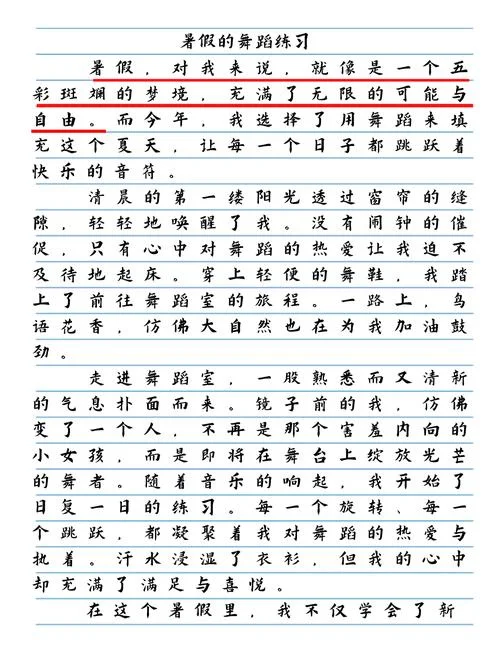 暑假的舞蹈练习
暑假，对我来说，就像是一个五
彩斑斓的梦境，充满了无限的可能与
自由。而今年，我选择了用舞蹈来填
充这个夏天，让每一个日子都跳跃着
快乐的音符。
清晨的第一缕阳光透过窗帘的缝
隙，轻轻地唤醒了我。没有闹钟的催
促，只有心中对舞蹈的热爱让我迫不
及待地起床。穿上轻便的舞鞋，我踏
上了前往舞蹈室的旅程。一路上，鸟
语花香，仿佛大自然也在为我加油鼓
劲。
走进舞蹈室，一股熟悉而又清新
的气息扑面而来。镜子前的我，仿佛
变了一个人，不再是那个害羞内向的
小女孩，而是即将在舞台上绽放光芒
的舞者。随着音乐的响起，我开始了
日复一日的练习。每一个旋转、每一
个跳跃，都凝聚着我对舞蹈的热爱与
执着。汗水浸湿了衣衫，但我的心中
却充满了满足与喜悦。
在这个暑假里，我不仅学会了新